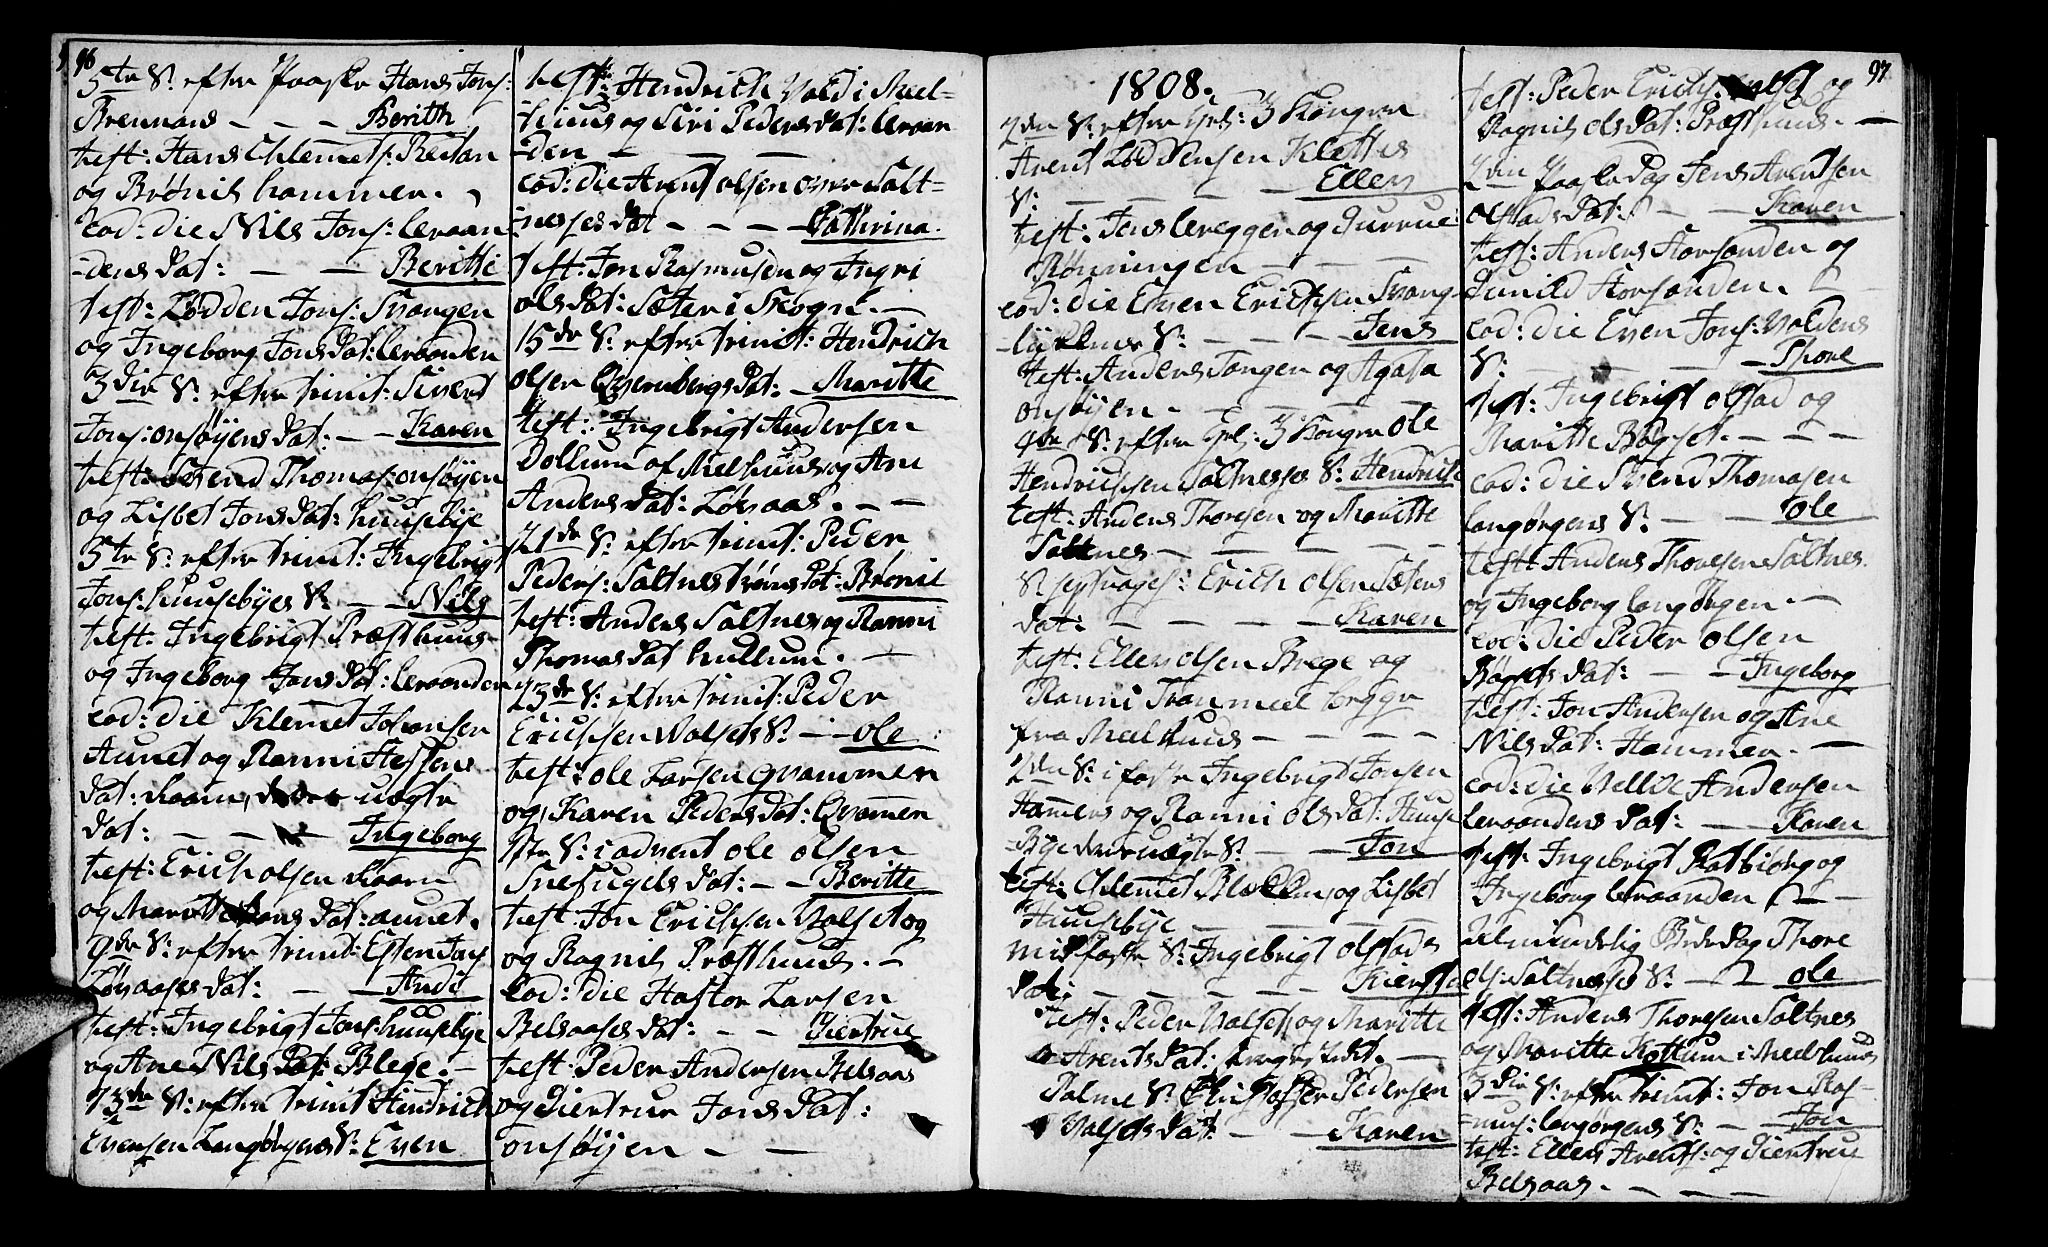 96
5te S: efter Paaske Hans Jons:
Brennaas - - - Berith
test: Hans Clemets: Reitan
og Brønil hammer.
eod: die Nils Jons: leraan
-dens Dat: - - Beritte
test: Lodden Jons: Svangen
og Ingeborg Jons Dat: leraanden
3die S: efter trinit: Sivert
Jons: onsøyens Dat: - - Karen
test: Svend Thomas: onsøyen
og Lisbet Jons Dat: huusebye
5te S: efter trinit: Ingebrigt
Jons: huusebyes S: - - Nils
test: Ingebrigt Præsthuus
og Ingeborg Jons Dat: leraanden
eod: die Klemet Johansen
Aunet og Ranni
Dat: uægte
Dat: - - - Ingeborg
test: Erich olsen
og Marit Dat: aunet.
9de S: efter trinit: Esten Jons
Løvaases Dat: - - Andi
test: Ingebrigt Jons: huusebye
og Ane Nils Dat: Blege. -
13de S: efter trinit Hendrich
Evensen Langørgens S: Even
test: Hendrich Vold i Mel-
-huus og Siri Peders Dat: leraan
-den - - -
eod: die Arent olsen over Salt-
-nesses Dat - - - Cathrina.
test: Jon Rasmusen og Ingri
ols Dat: Sæter i Skogn. -
15de S: efter trinit: Hendrich
olsen Qvernbergs Dat: - Maritte
test: Ingebrigt Andersen
Dollum af Melhuus og Ane
Anders Dat: Løvaas. - -
21de S: efter trinit: Peder
Peders: Saltnes trøens Dat: Brønil
test: Anders Saltnes og Ranni
Thomas Dat hullum. -
23de S: efter trinit: Peder
Erichsen Valsets S: - ole
test: ole Larsen Qvammen
og Karen Peders Dat: Qvamen
1ste S: i advent ole olsen
Snefugels Dat: - - Beritte
test: Jon Erichsen Valset og
og Ragnil Præsthuus. -
Eod: die Haftor Larsen
Belsaases Dat: - - Giertrue
test: Peder Andersen Belsaas
og Giertrue Jons Dat:
onsøyen - -
1808.
2den S: efter Hel: 3 Konger
Arent Loddensen Klettes
S: - - - - Ellen
test: Jens lereggen og Gurrue
Rønningen - - -
eod: die Even Erichsen Svang
-lückens S: - - - Jens
test: Anders Tangen og Agata
onsøyen. - - -
4de S: efter Hel: 3 Konger ole
Hendrichsen Saltnesses S: Hendrich
test: Anders Thoresen og Maritte
Saltnes - - - -
S septuages: Erich olsen Sætens
Dat: - - - - Karen
test: Ellen olsen Brege og
Ranni Tranmæl bygge
fra Melhuus - - - -
2den S: i faste Ingebrigt Jonsen
Hammers og Ranni ols Dat: Huuse
-Bye uægte S: - - Jon
test: Clemet og Lisbet
Huusebye - - -
mitfaste S: Ingebrigt olstads
Dat: - - - -
test: Peder Valset og Maritte
Arents Dat: -
Palme S: Pedersen
Valsets Dat: - - Karen
97
test: Peder Erichs: og
Ragnil ols Dat: Præsthuus. -
2den Paaske Dag Jens Arentsen
olstads Dat: - - Karen
test: Anders Storsanden og
Gunild Storsanden.
eod: die Even Jons: Voldens
S: - - - Thore
test: Ingebrigt olstad og
Maritte Bøgset. - - -
eod: die Svend Thomasen
langørgens S: - - ole
test: Anders Thoresen Saltnes.
og Ingeborg langørgen. -
eod: die Peder olsen
Bøgsets Dat: - - Ingeborg
test: Jon Andersen og Ane
Nils Dat: Hammer. -
eod: die Andersen
leraandens Dat: - Karen
test: Ingebrigt og
Ingeborg leraanden
Almindelig Bede Dag Thore
ols: Saltnesses S: - ole
test: Anders Thoresen Saltnes
og Maritte Kottum i Melhuus
3die S: efter trinit: Jon Ras-
-mus: langørgens S: - Jon
test: Ellen Arents: og Giertrue
Belsaas. - - -